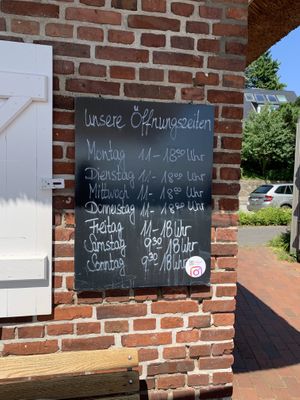 unsere Öffnungszeiten
Montag 11 - 18⁰⁰ Uhr
Dienstag 11 - 18⁰⁰ Uhr
Mittwoch 11 - 18⁰⁰ Uhr
Donnerstag 11 - 18⁰⁰ Uhr
Freitag 11 - 18 Uhr
Samstag 9³⁰ - 18 Uhr
Sonntag 9³⁰ - 18 Uhr